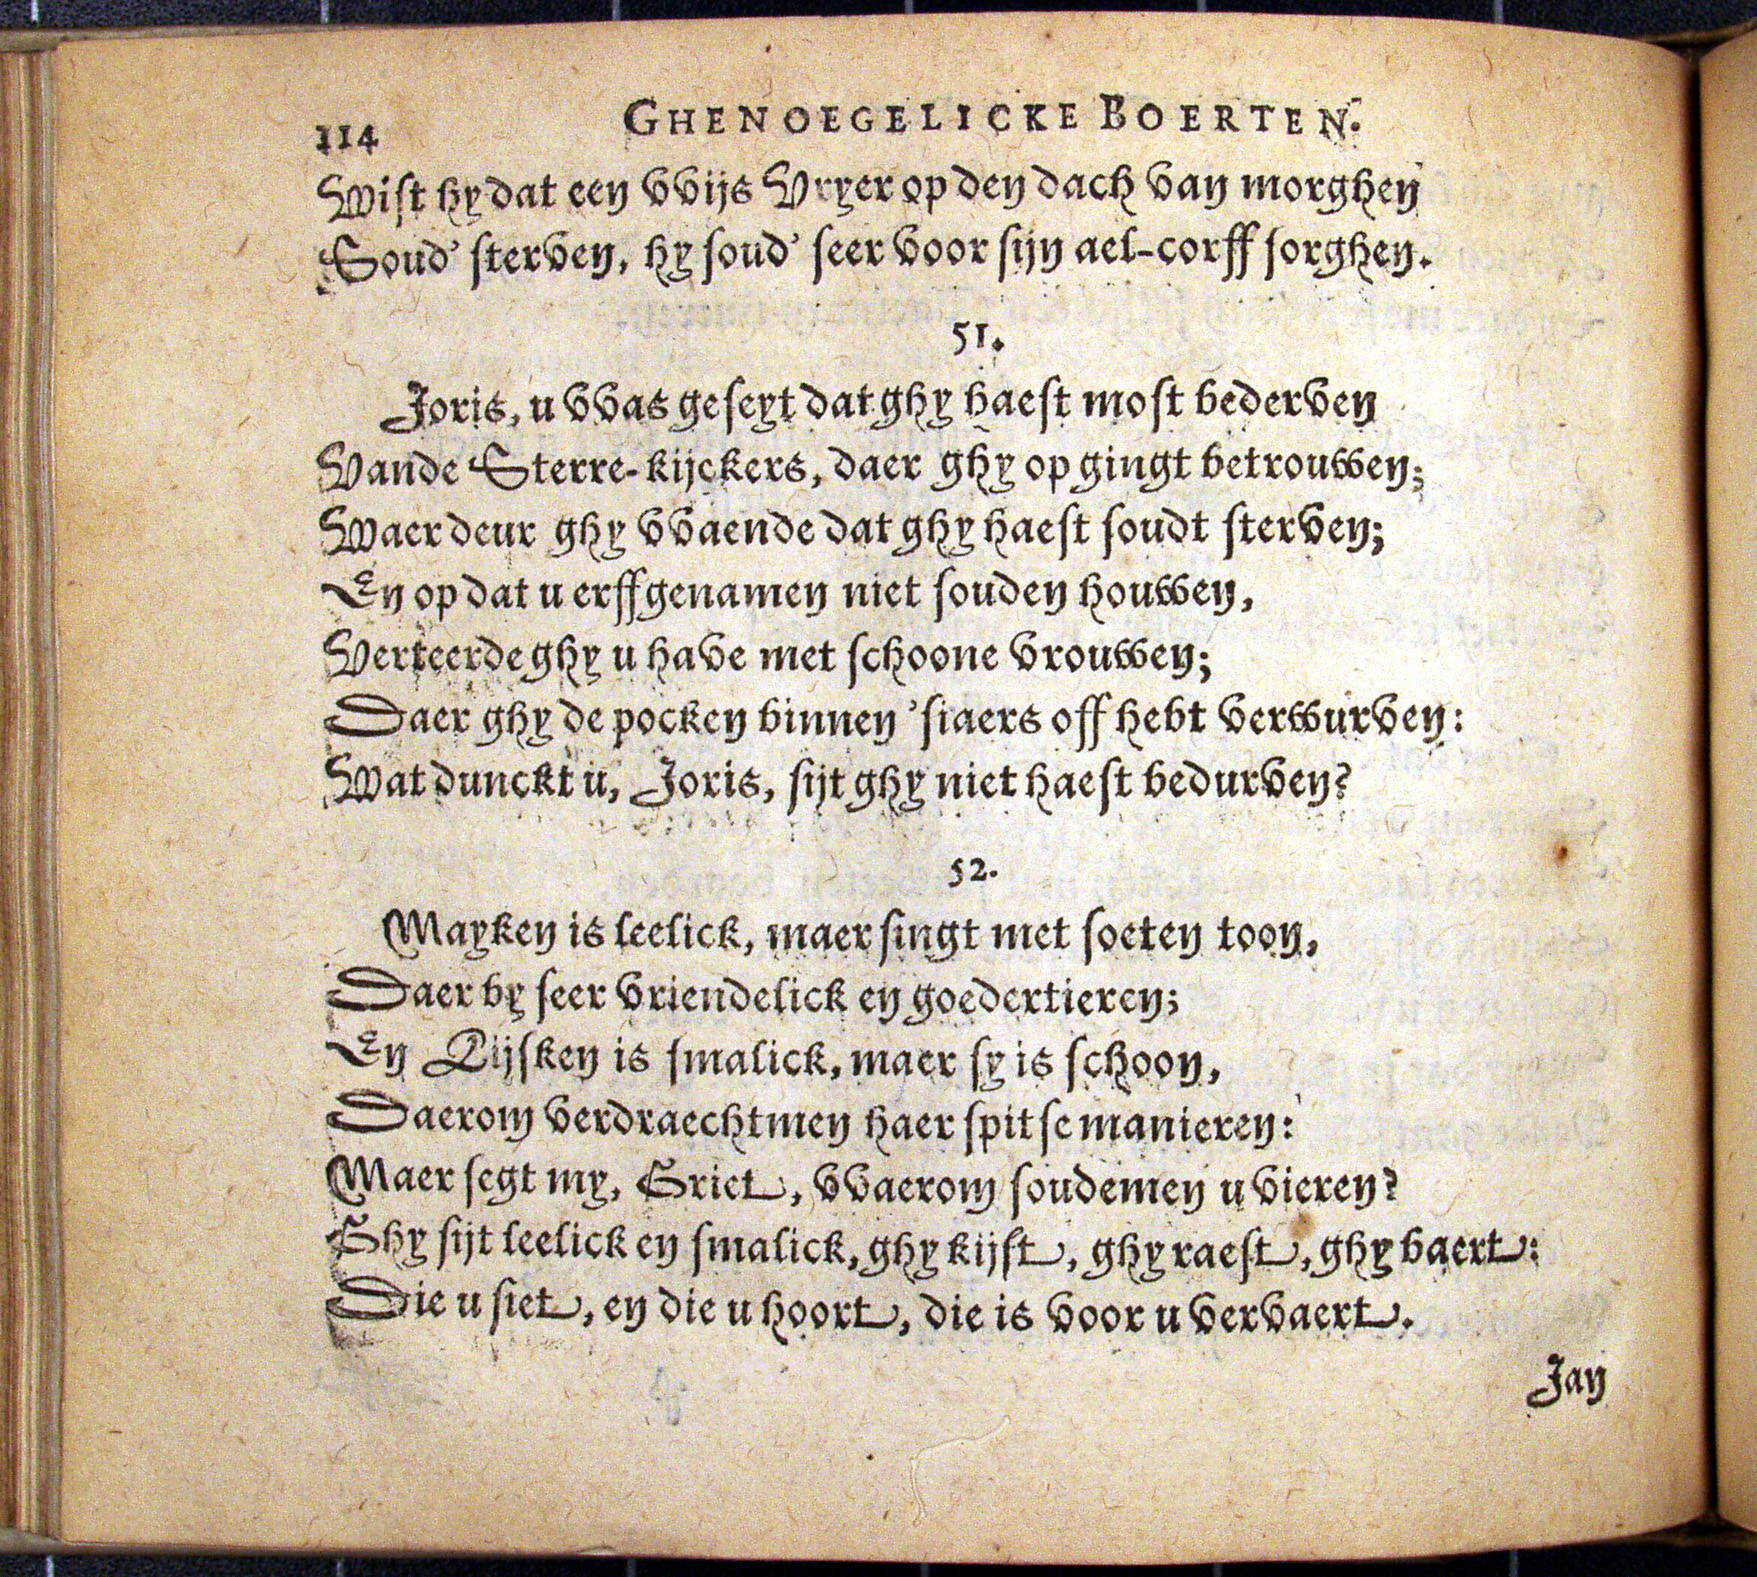 114 GHENOEGELICKE BOERTEN.
Wist hy dat een vvijs Vryer op den dach van morghen
Soud' sterven, hy soud' seer voor sijn ael-corff sorghen.
51.
Joris, u vvas geseyt dat ghy haest most bederven
Vande Sterre-kijckers, daer ghy op gingt betrouwen;
Waer deur ghy vvaende dat ghy haest soudt sterven;
En op dat u erffgenamen niet souden houwen,
Verteerde ghy u have met schoone vrouwen;
Daer ghy de pocken binnen 'siaers off hebt verwurven:
Wat dunckt u, Joris, sijt ghy niet haest bedurven?
52.
Mayken is leelick, maer singt met soeten toon,
Daer by seer vriendelick en goedertieren;
En Lijsken is smalick, maer sy is schoon,
Daerom verdraechtmen haer spitse manieren:
Maer segt my, Griet, vvaerom soudemen u vieren?
Ghy sijt leelick en smalick, ghy kijft, ghy raest, ghy baert:
Die u siet, en die u hoort, die is voor u vervaert.
Jan